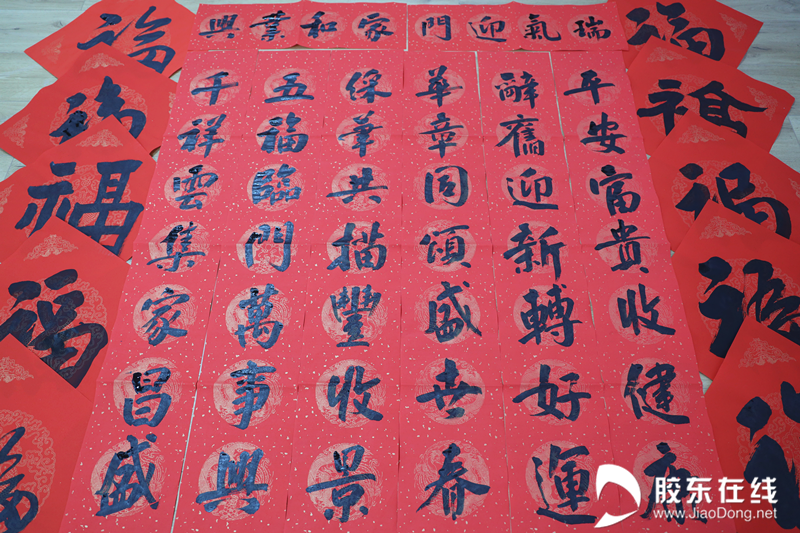 瑞氣迎門
家和業興
平安富貴收健康
辭舊迎新轉好運
華章同頌盛世春
筆共描豐收景
五福臨門萬事興
千祥雲集家昌盛
福
福
福
福
福
福
福
胶东在线
www.JiaoDong.net